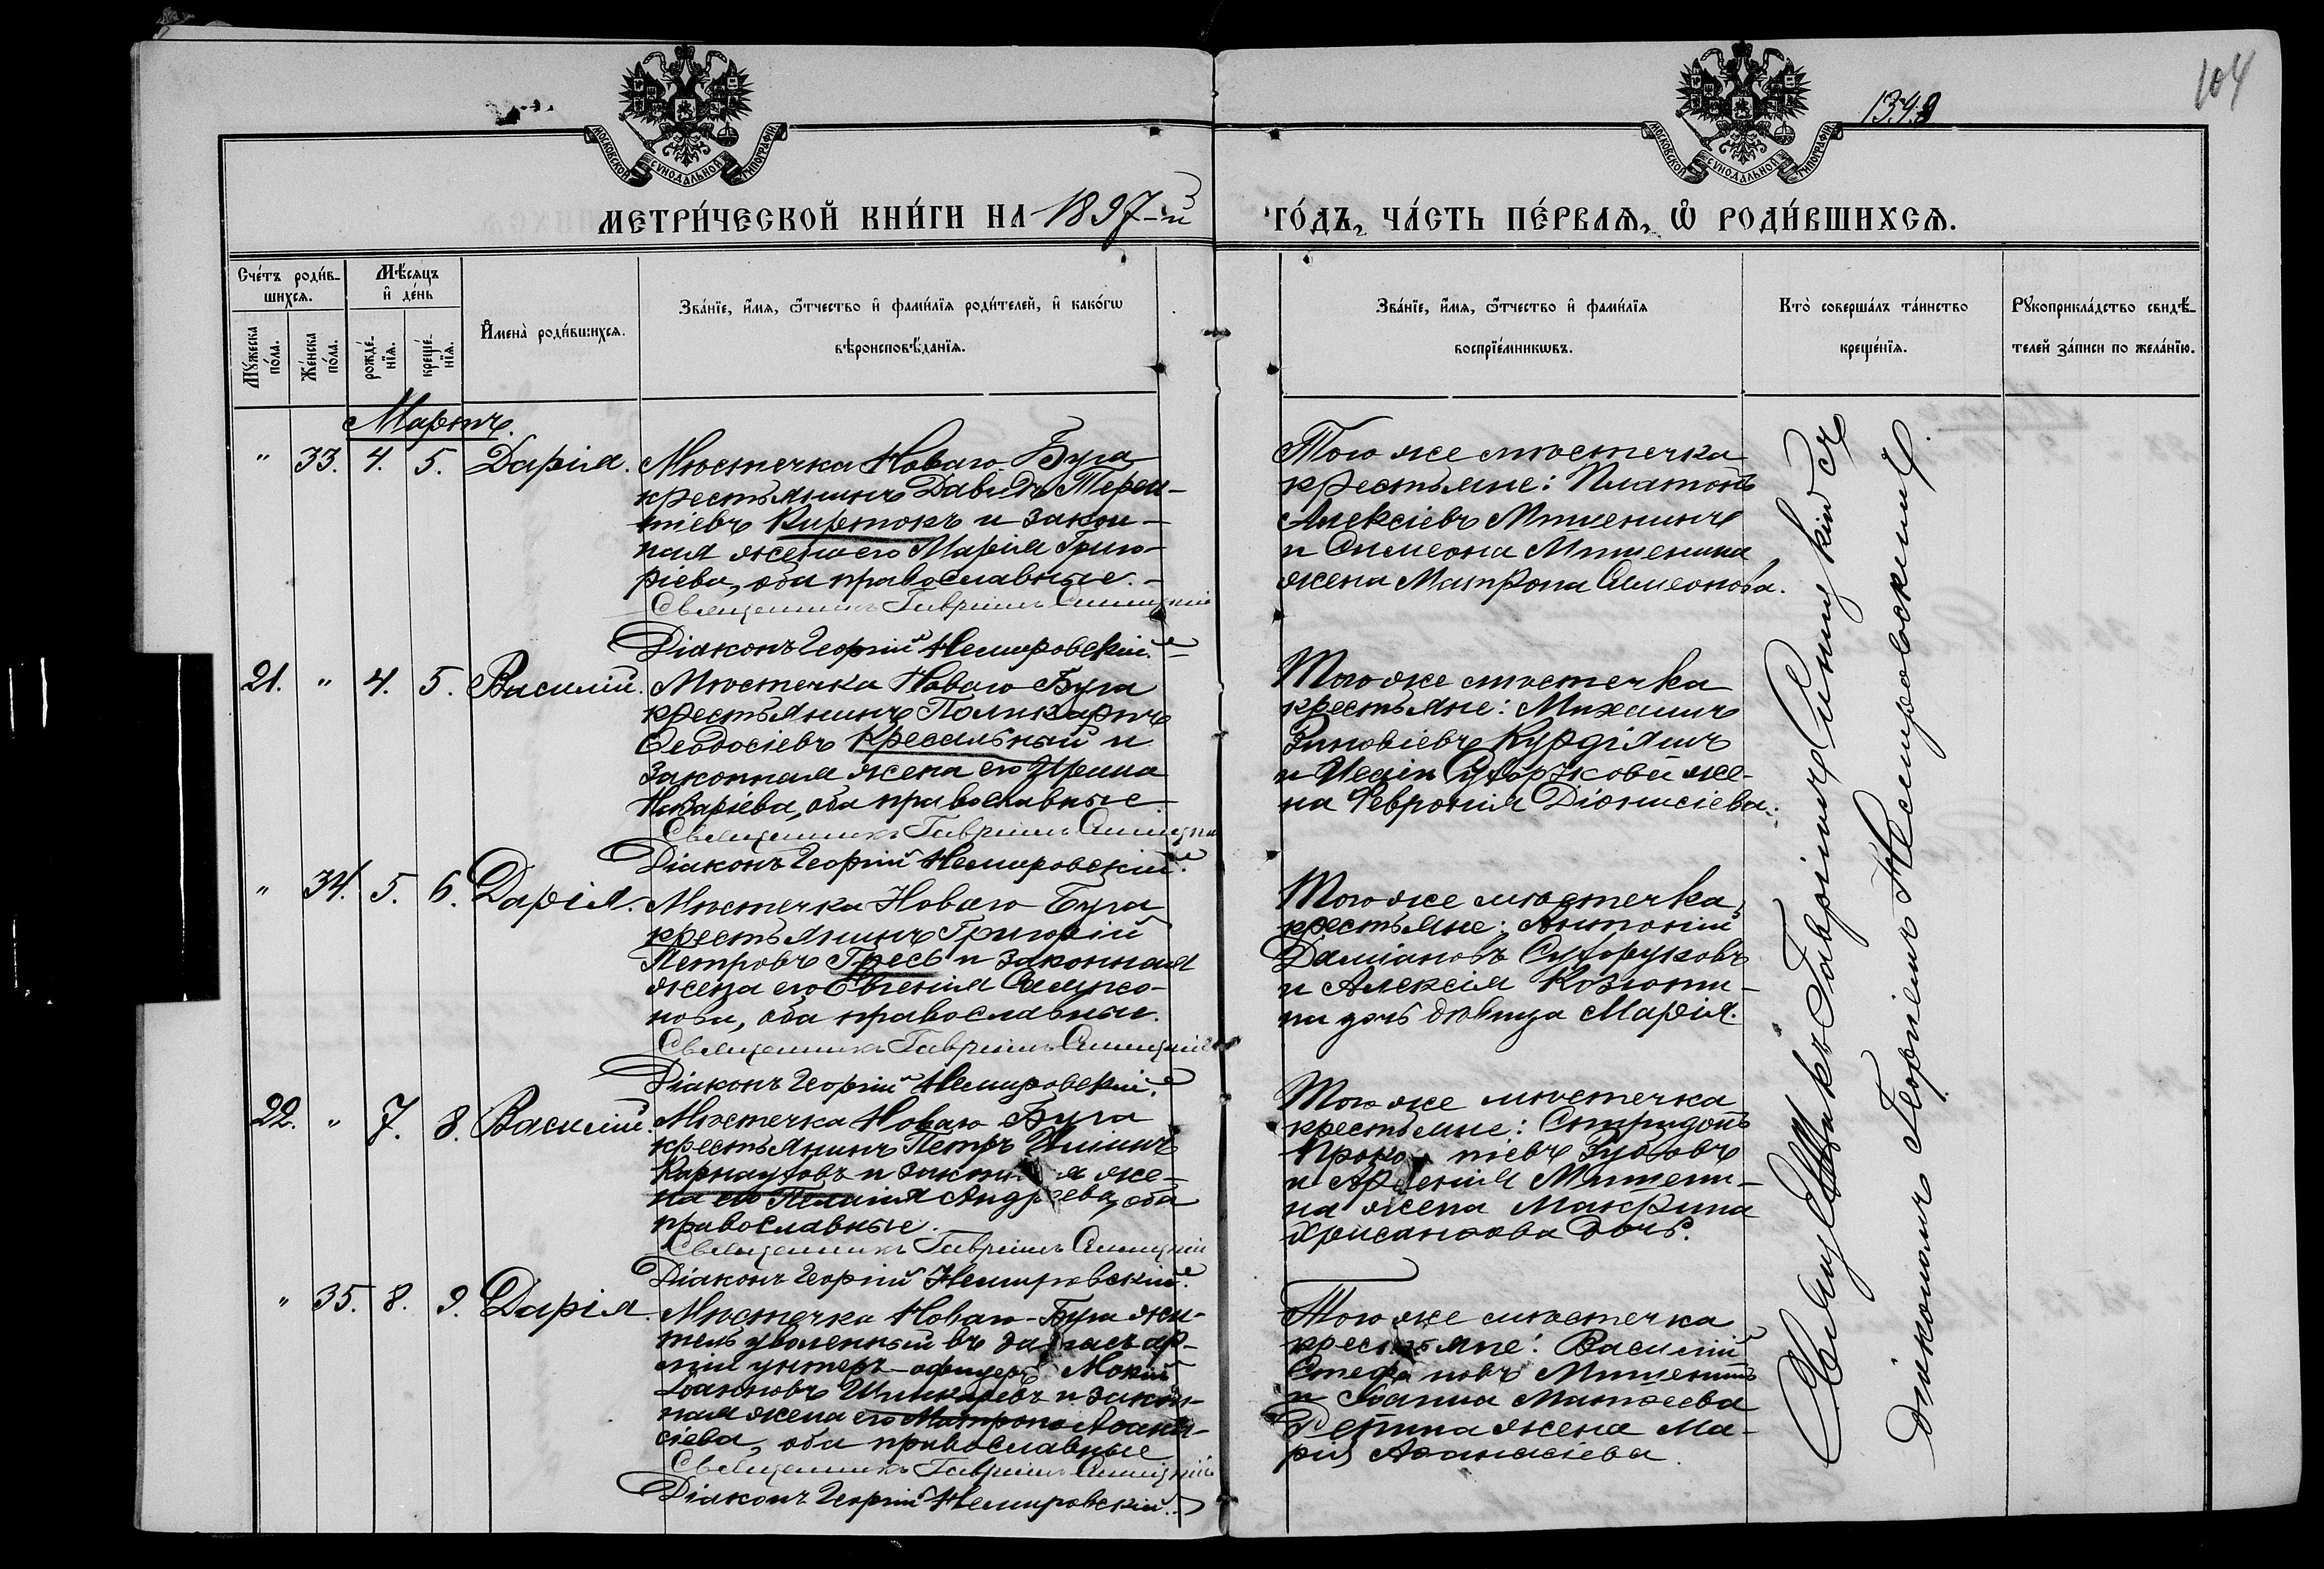 104
1349
МОСКОВСКОЙ СУНОДАЛЬНОЙ ТИПОГРАФІИ
МОСКОВСКОЙ СУНОДАЛЬНОЙ ТИПОГРАФІИ
МЕТРИ́ЧЕСКОЙ КНИ́ГИ НА 1897-й
ГО́ДЪ, ЧА́СТЬ ПЕ́РВАѦ, Ѡ҆ РОДИ́ВШИХСѦ.
Сче́тъ роди́в-
шихсѧ.
Мѣ́сѧцъ
и҆ де́нь
Мꙋ́жеска
по́ла.
Же́нска
по́ла.
рожде́-
нїѧ.
креще́-
нїѧ.
И҆мена̀ роди́вшихсѧ.
Зва́нїе, и҆́мѧ, ѻ҆́тчество и҆ фами́лїѧ роди́телей, и҆ како́гѡ
вѣроисповѣ́данїѧ.
Зва́нїе, и҆́мѧ, ѻ҆́тчество и҆ фами́лїѧ
воспрїе́мникѡвъ.
Кто̀ соверша́лъ та́инство
креще́нїѧ.
Рꙋкоприкла́дство свидѣ́-
телей за́писи по жела́нїю.
Мартъ.
" 33. 4. 5. Дарія.
Мѣстечка Новаго Буга
крестьянинъ Давидъ Терен-
тіевъ Кирток и закон-
ная жена его Марія Григо-
ріева, оба православные.-
Священникъ Гавріилъ Синицкій
Діаконъ Георгій Немировскій.
Того же мѣстечка
крестьяне: Платонъ
Алексіевъ Мишенинъ
и Симеона Мишенина
жена Матрона Симеонова.
21. " 4. 5. Василій.
Мѣстечка Новаго Буга
крестьянинъ Поликарпъ
Ѳеодосіевъ Кресальный и
законная жена его Ирина
Назаріева, оба православные
Священникъ Гавріилъ Синицкій
Діаконъ Георгій Немировскій.
Того же мѣстечка
крестьяне: Михаилъ
Зиновіевъ Курдіянъ
и Исаіи жe-
на Ѳевронія Діонисіева.
" 34. 5. 6. Дарія.
Мѣстечка Новаго Буга
крестьянинъ Григорій
Петровъ Гресь и законная
жена его Евгенія Самсо-
нова, оба православные.
Священникъ Гавріилъ Синицкій
Діаконъ Георгій Немировскій.
Того же мѣстечка
крестьяне: Антоній
Даміановъ Сухоруковъ
и Алексія
на дочь дѣвица Марія.
22. " 7. 8. Василій.
Мѣстечка Новаго Буга
крестьянинъ Петръ Ильинъ
Карнауховъ и законная же-
на его Пелагія Андреева, оба
православные.
Священникъ Гавріилъ Синицкій
Діаконъ Георгій Немировскій.
Того же мѣстечка
крестьяне: Спиридонъ
Прокопіевъ Зубовъ
и Арсенія Мишени-
на жена Макрина
Хрисанѳова дочь.
" 35. 8. 9. Дарія.
Мѣстечка Новаго-Буга жи-
тель уволенный въ запасъ ар-
міи унтеръ-офицеръ Мокій
Іоанновъ Шинкаревъ и закон-
ная жена его Матрона Аѳана-
сіева, оба православные
Священникъ Гавріилъ Синицкій
Діаконъ Георгій Немировскій.
Того же мѣстечка
крестьяне: Василій
Стефановъ Мишенинъ
и Іоанна Матѳеева
Репина жена Ма-
рія Аѳанасіева.
Священникъ Гавріилъ Синицкій съ
діакономъ Георгіемъ Немировскимъ.